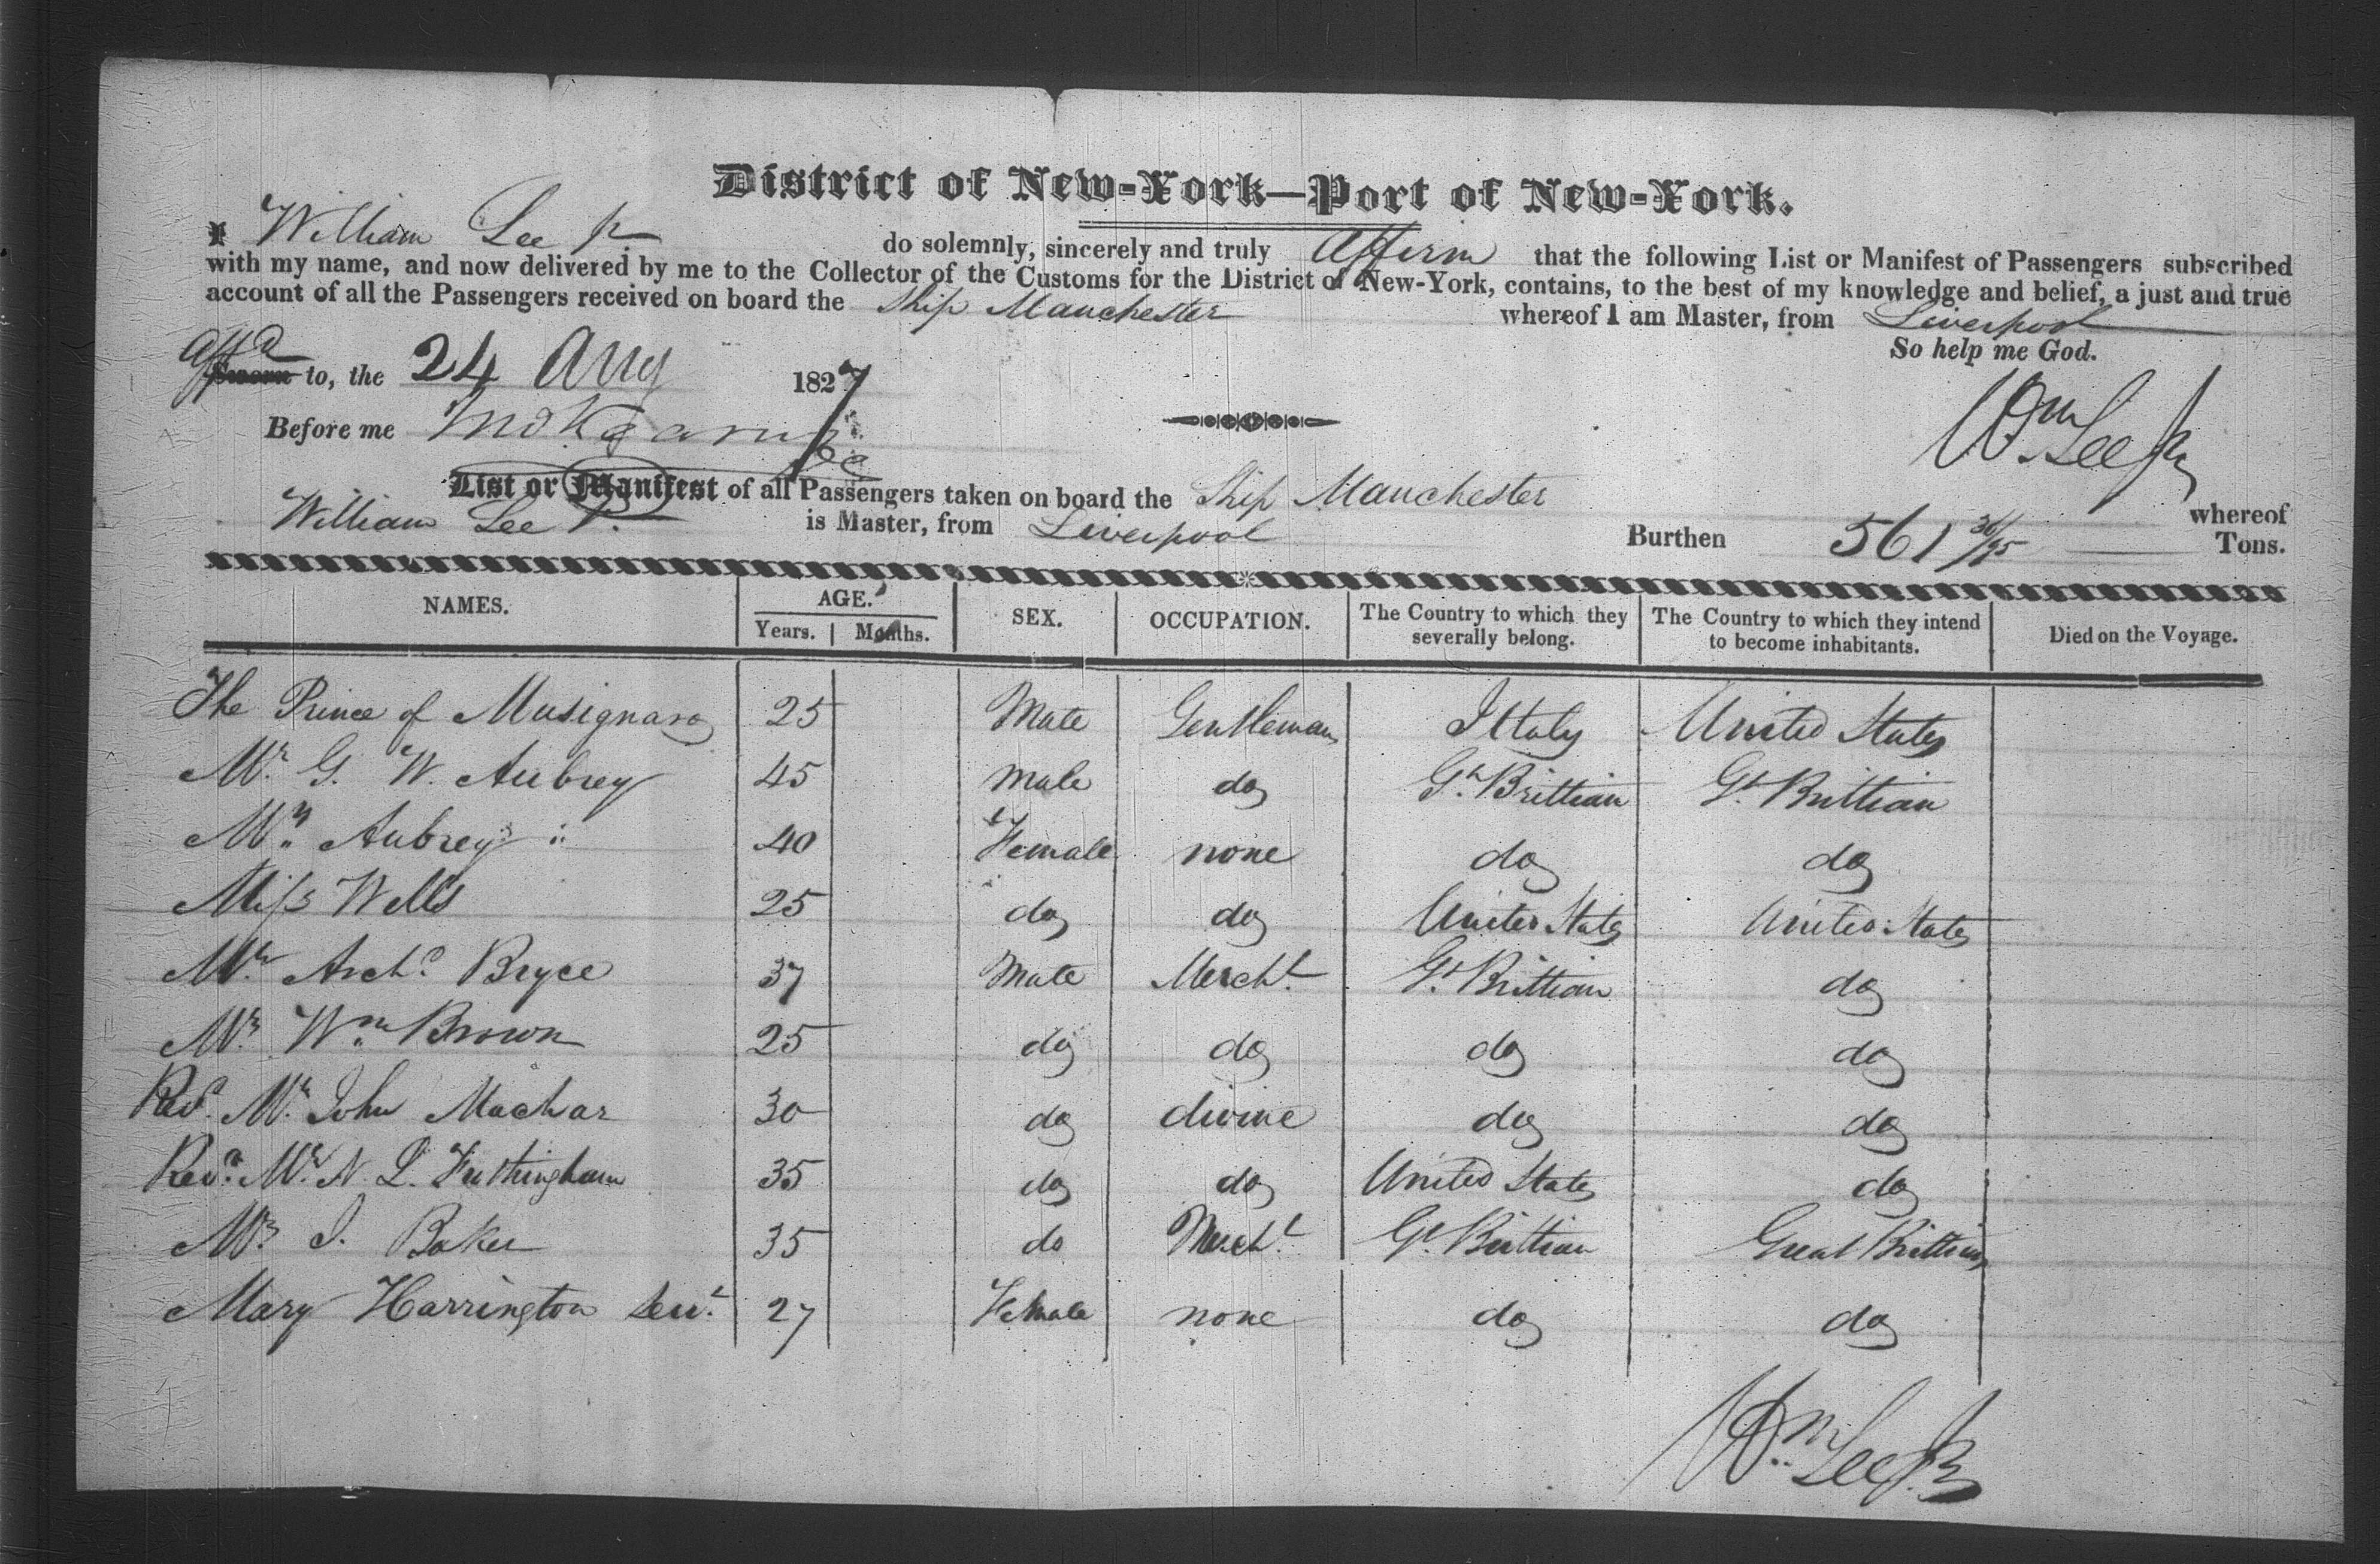 District of New-York—Port of New-York.
I William Lee Jr. do solemnly, sincerely and truly affirm that the following List or Manifest of Passengers subscribed
with my name, and now delivered by me to the Collector of the Customs for the District of New-York, contains, to the best of my knowledge and belief, a just and true
account of all the Passengers received on board the Ship Manchester whereof I am Master, from Liverpool
So help me God.
Affd
Sworn to, the 24 Aug 1827
Before me
Wm Lee Jr
List or Manifest of all Passengers taken on board the Ship Manchester whereof
William Lee Jr. is Master, from Liverpool Burthen 561 36/95 Tons.
NAMES. AGE. SEX. OCCUPATION. The Country to which they severally belong. The Country to which they intend to become inhabitants. Died on the Voyage.
Years. Months.
The Prince of Musignano 25 Male Gentleman Ittaly United States
Mr. G. W. Aubrey 45 Male do Gt. Brittian Gt. Brittian
Mrs. Aubrey 40 Female none do do
Miss Wells 25 do do United States United States
Mr. Archd. Bryce 37 Male Mercht. Gt. Brittian do
Mr. Wm. Brown 25 do do do do
Revd. Mr. John Machar 30 do divine do do
Revd. Mr. N. L. Futhingham 35 do do United States do
Mr. J. Baker 35 do Mercht. Gt. Brittian Great Brittian
Mary Harrington Servt. 27 Female none do do
Wm. Lee Jr.